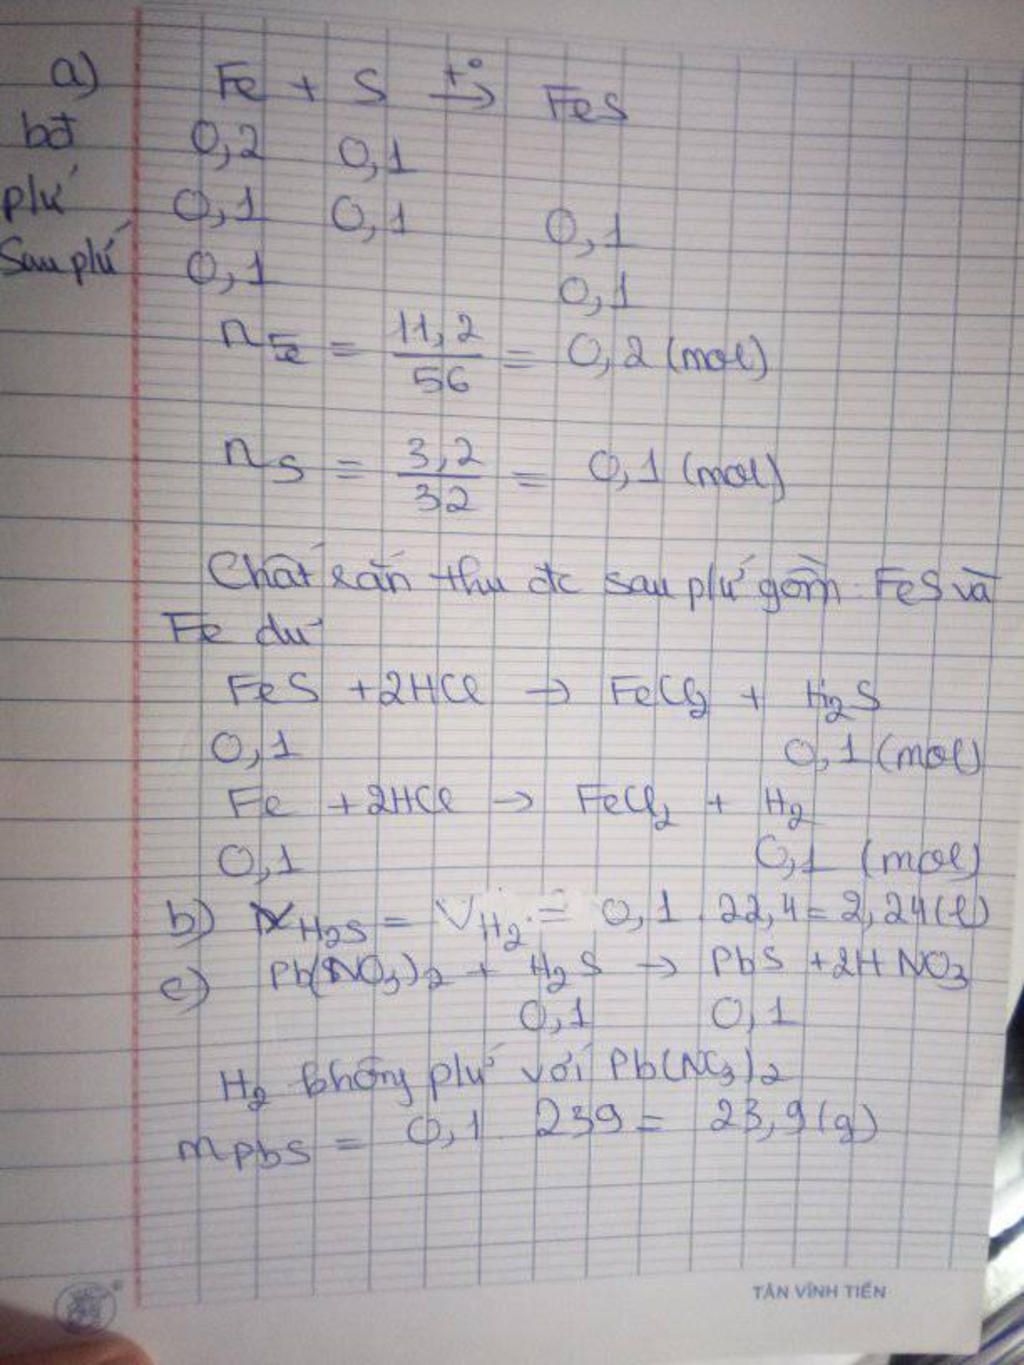 a) Fe + S →t° FeS
bđ 0,2 0,1
pứ 0,1 0,1 0,1
Sau pứ 0,1 0,1
nFe = 11,2/56 = 0,2 (mol)
nS = 3,2/32 = 0,1 (mol)
Chất rắn thu đc sau pứ gồm FeS và
Fe dư
FeS + 2HCl → FeCl₂ + H₂S
0,1 0,1 (mol)
Fe + 2HCl → FeCl₂ + H₂
0,1 0,1 (mol)
b) VH₂S = VH₂ = 0,1 . 22,4 = 2,24 (l)
c) Pb(NO₃)₂ + H₂S → PbS + 2HNO₃
0,1 0,1
H₂ không pứ với Pb(NO₃)₂
mPbS = 0,1 239 = 23,9 (g)
TÂN VĨNH TIẾN